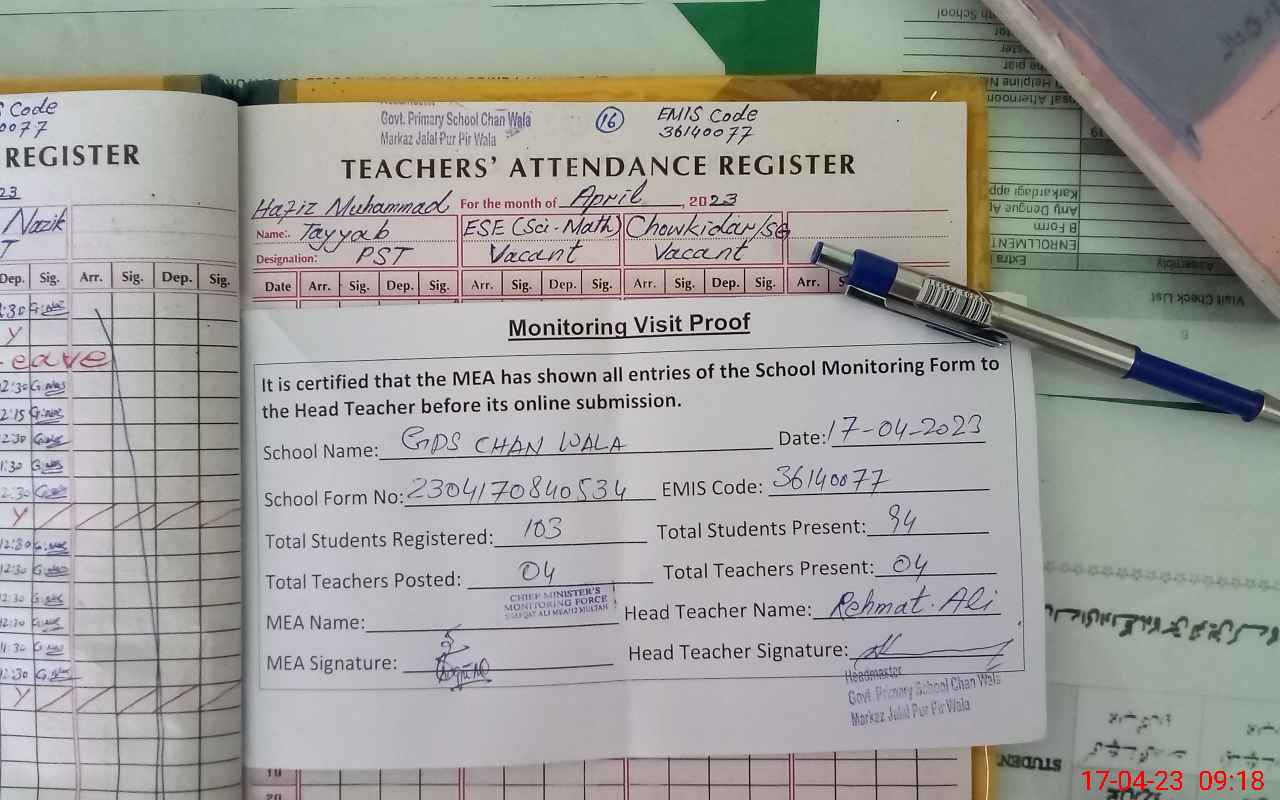 s Code
0077
REGISTER
23
Nazik
T
Dep. Sig. Arr. Sig. Dep. Sig.
Y
Leave
12:30
2:15
2:30
1:30
2:30
Y
12:30
12:30
12:30
12:30
11:30
12:30
Y
Govt. Primary School Chan Wala
Markaz Jalal Pur Pir Wala
16
EMIS Code
36140077
TEACHERS' ATTENDANCE REGISTER
Hafiz Muhammad For the month of April, 2023
Name:. Tayyab ESE (Sci-Math) Chowkidar/SG
Designation: PST Vacant Vacant
Date Arr. Sig. Dep. Sig. Arr. Sig. Dep. Sig. Arr. Sig. Dep. Sig. Arr. S
Monitoring Visit Proof
It is certified that the MEA has shown all entries of the School Monitoring Form to
the Head Teacher before its online submission.
School Name: GPS CHAN WALA Date: 17-04-2023
School Form No: 2304170840534 EMIS Code: 36140077
Total Students Registered: 103 Total Students Present: 94
Total Teachers Posted: 04 Total Teachers Present: 04
CHIEF MINISTER'S
MONITORING FORCE
MEA Name: Head Teacher Name: Rehmat. Ali
MEA Signature: Head Teacher Signature:
Headmaster
Govt. Primary School Chan Wala
Markaz Jalal Pur Pir Wala
19
20
School
Helpline
Afternoon
19
Karkardagi app
Any Dengue
B Form
ENROLLMENT
Extra
Assembly
Visit Check List
6
STUDENT
17-04-23 09:18